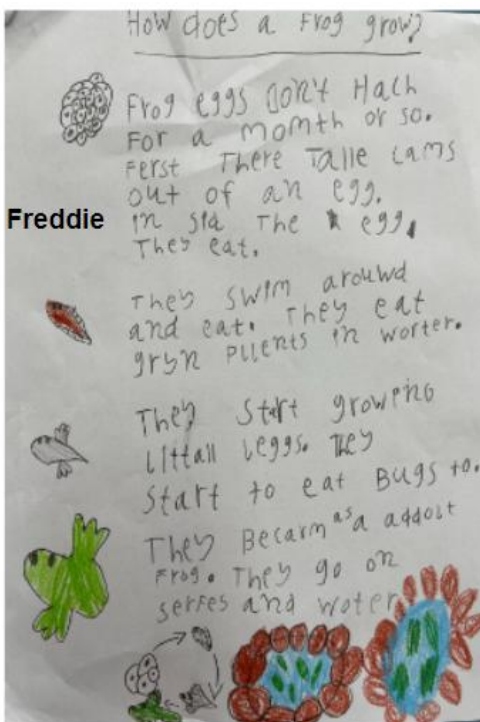 How does a Frog grow?
Frog eggs Don't Hach
For a month or so.
Ferst There Talle cams
out of an egg.
Freddie
in sid The egg,
They eat.
They swim arouwd
and eat. They eat
gryn Pllents in worter.
They Start groweing
littall leggs. They
Start to eat Bugs to.
They Becarm as a addolt
Frog. They go on
serfes and woter